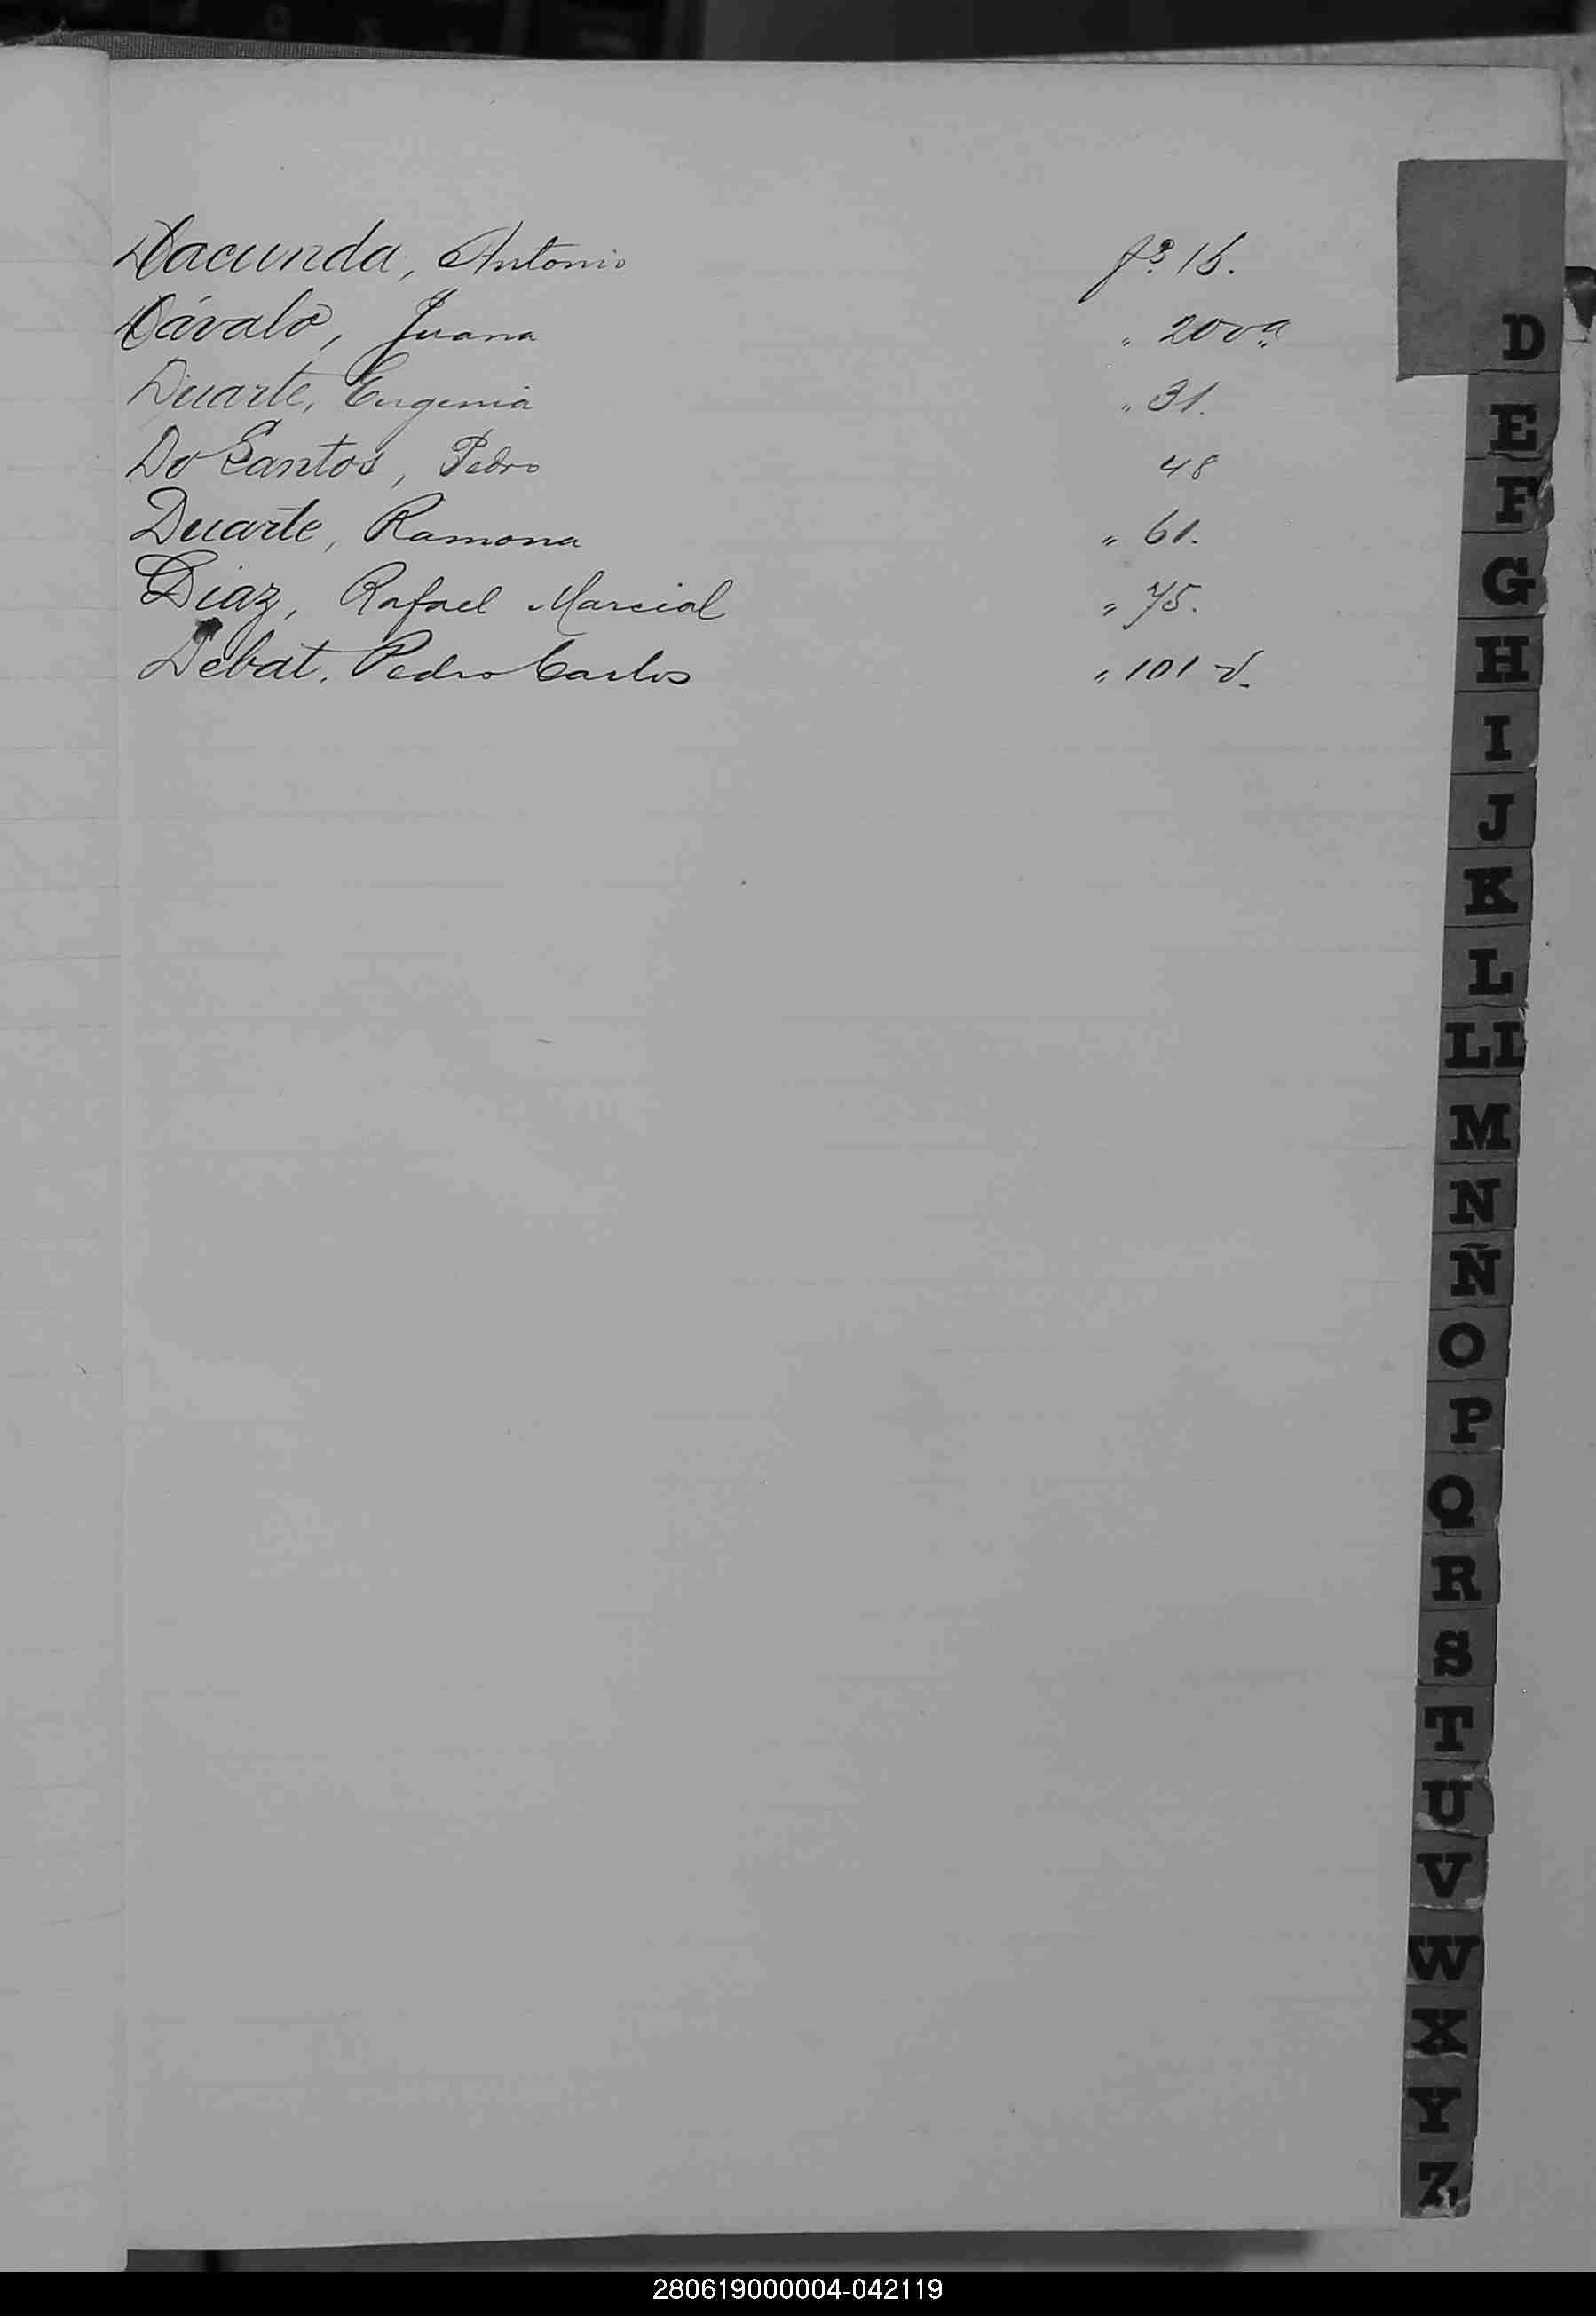 Dacunda, Antonio fº 16.
Dávalo, Juana " 20 vª
Duarte, Eugenia " 31.
Do Santos, Pedro 48
Duarte, Ramona " 61.
Diaz, Rafael Marcial " 75.
Debat, Pedro Carlos " 101 v.
D
E
F
G
H
I
J
K
L
LL
M
N
Ñ
O
P
Q
R
S
T
U
V
W
X
Y
Z
280619000004-042119